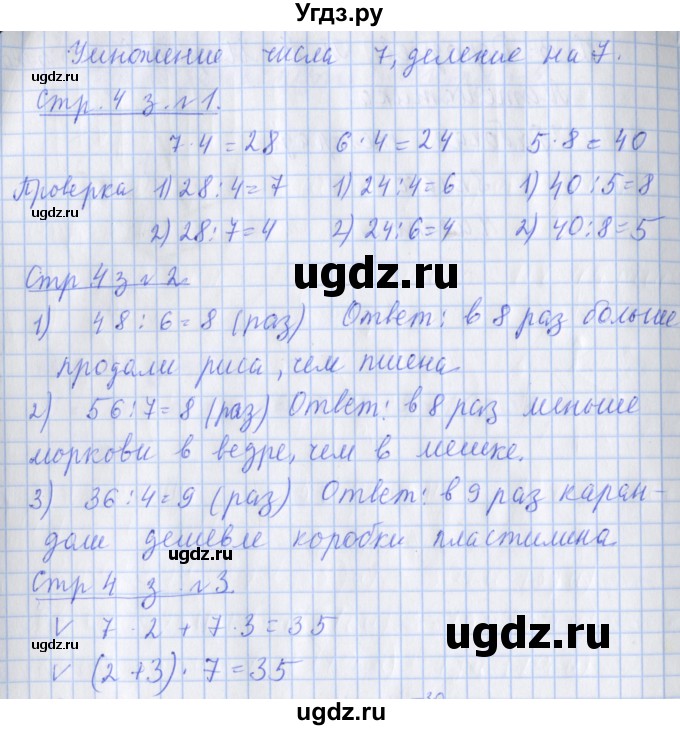 Угдз.ру
Умножение числа 7, деление на 7.
Стр. 4 з. №1.
7·4=28 6·4=24 5·8=40
Проверка 1) 28:4=7 1) 24:4=6 1) 40:5=8
2) 28:7=4 2) 24:6=4 2) 40:8=5
Стр 4 з №2.
1) 48:6=8 (раз) Ответ: в 8 раз больше
продали риса, чем пшена
2) 56:7=8 (раз) Ответ: в 8 раз меньше
моркови в ведре, чем в мешке.
3) 36:4=9 (раз) Ответ: в 9 раз каран-
даш дешевле коробки пластилина
Стр 4 з. №3.
V 7·2+7·3=35
V (2+3)·7=35
ugdz.ru
ugdz.ru
ugdz.ru
ugdz.ru
ugdz.ru
ugdz.ru
ugdz.ru
ugdz.ru
ugdz.ru